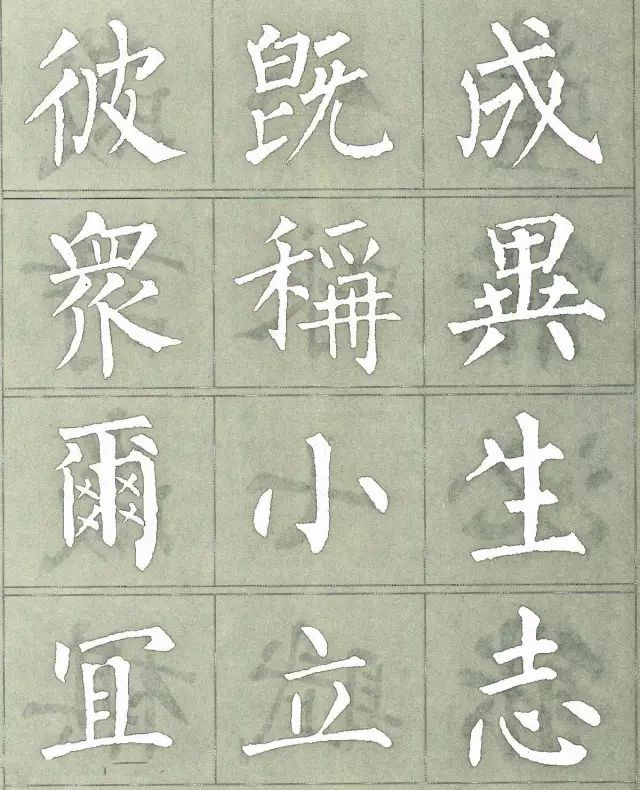 彼既成
衆稱異
爾小生
冝立志